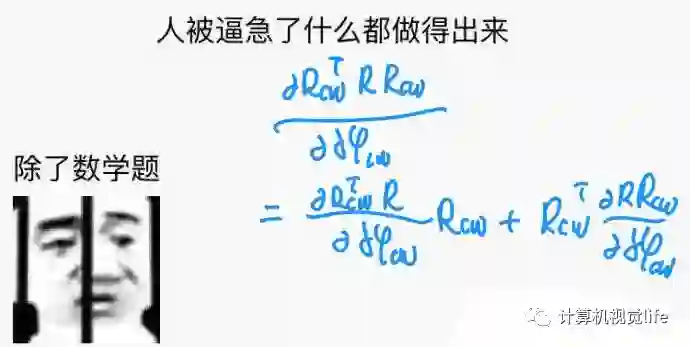 人被逼急了什么都做得出来
∂Rcw^T R Rcw
∂δφcw
除了数学题
= ∂Rcw^T R / ∂δφcw Rcw + Rcw^T ∂R Rcw / ∂δφcw
计算机视觉life